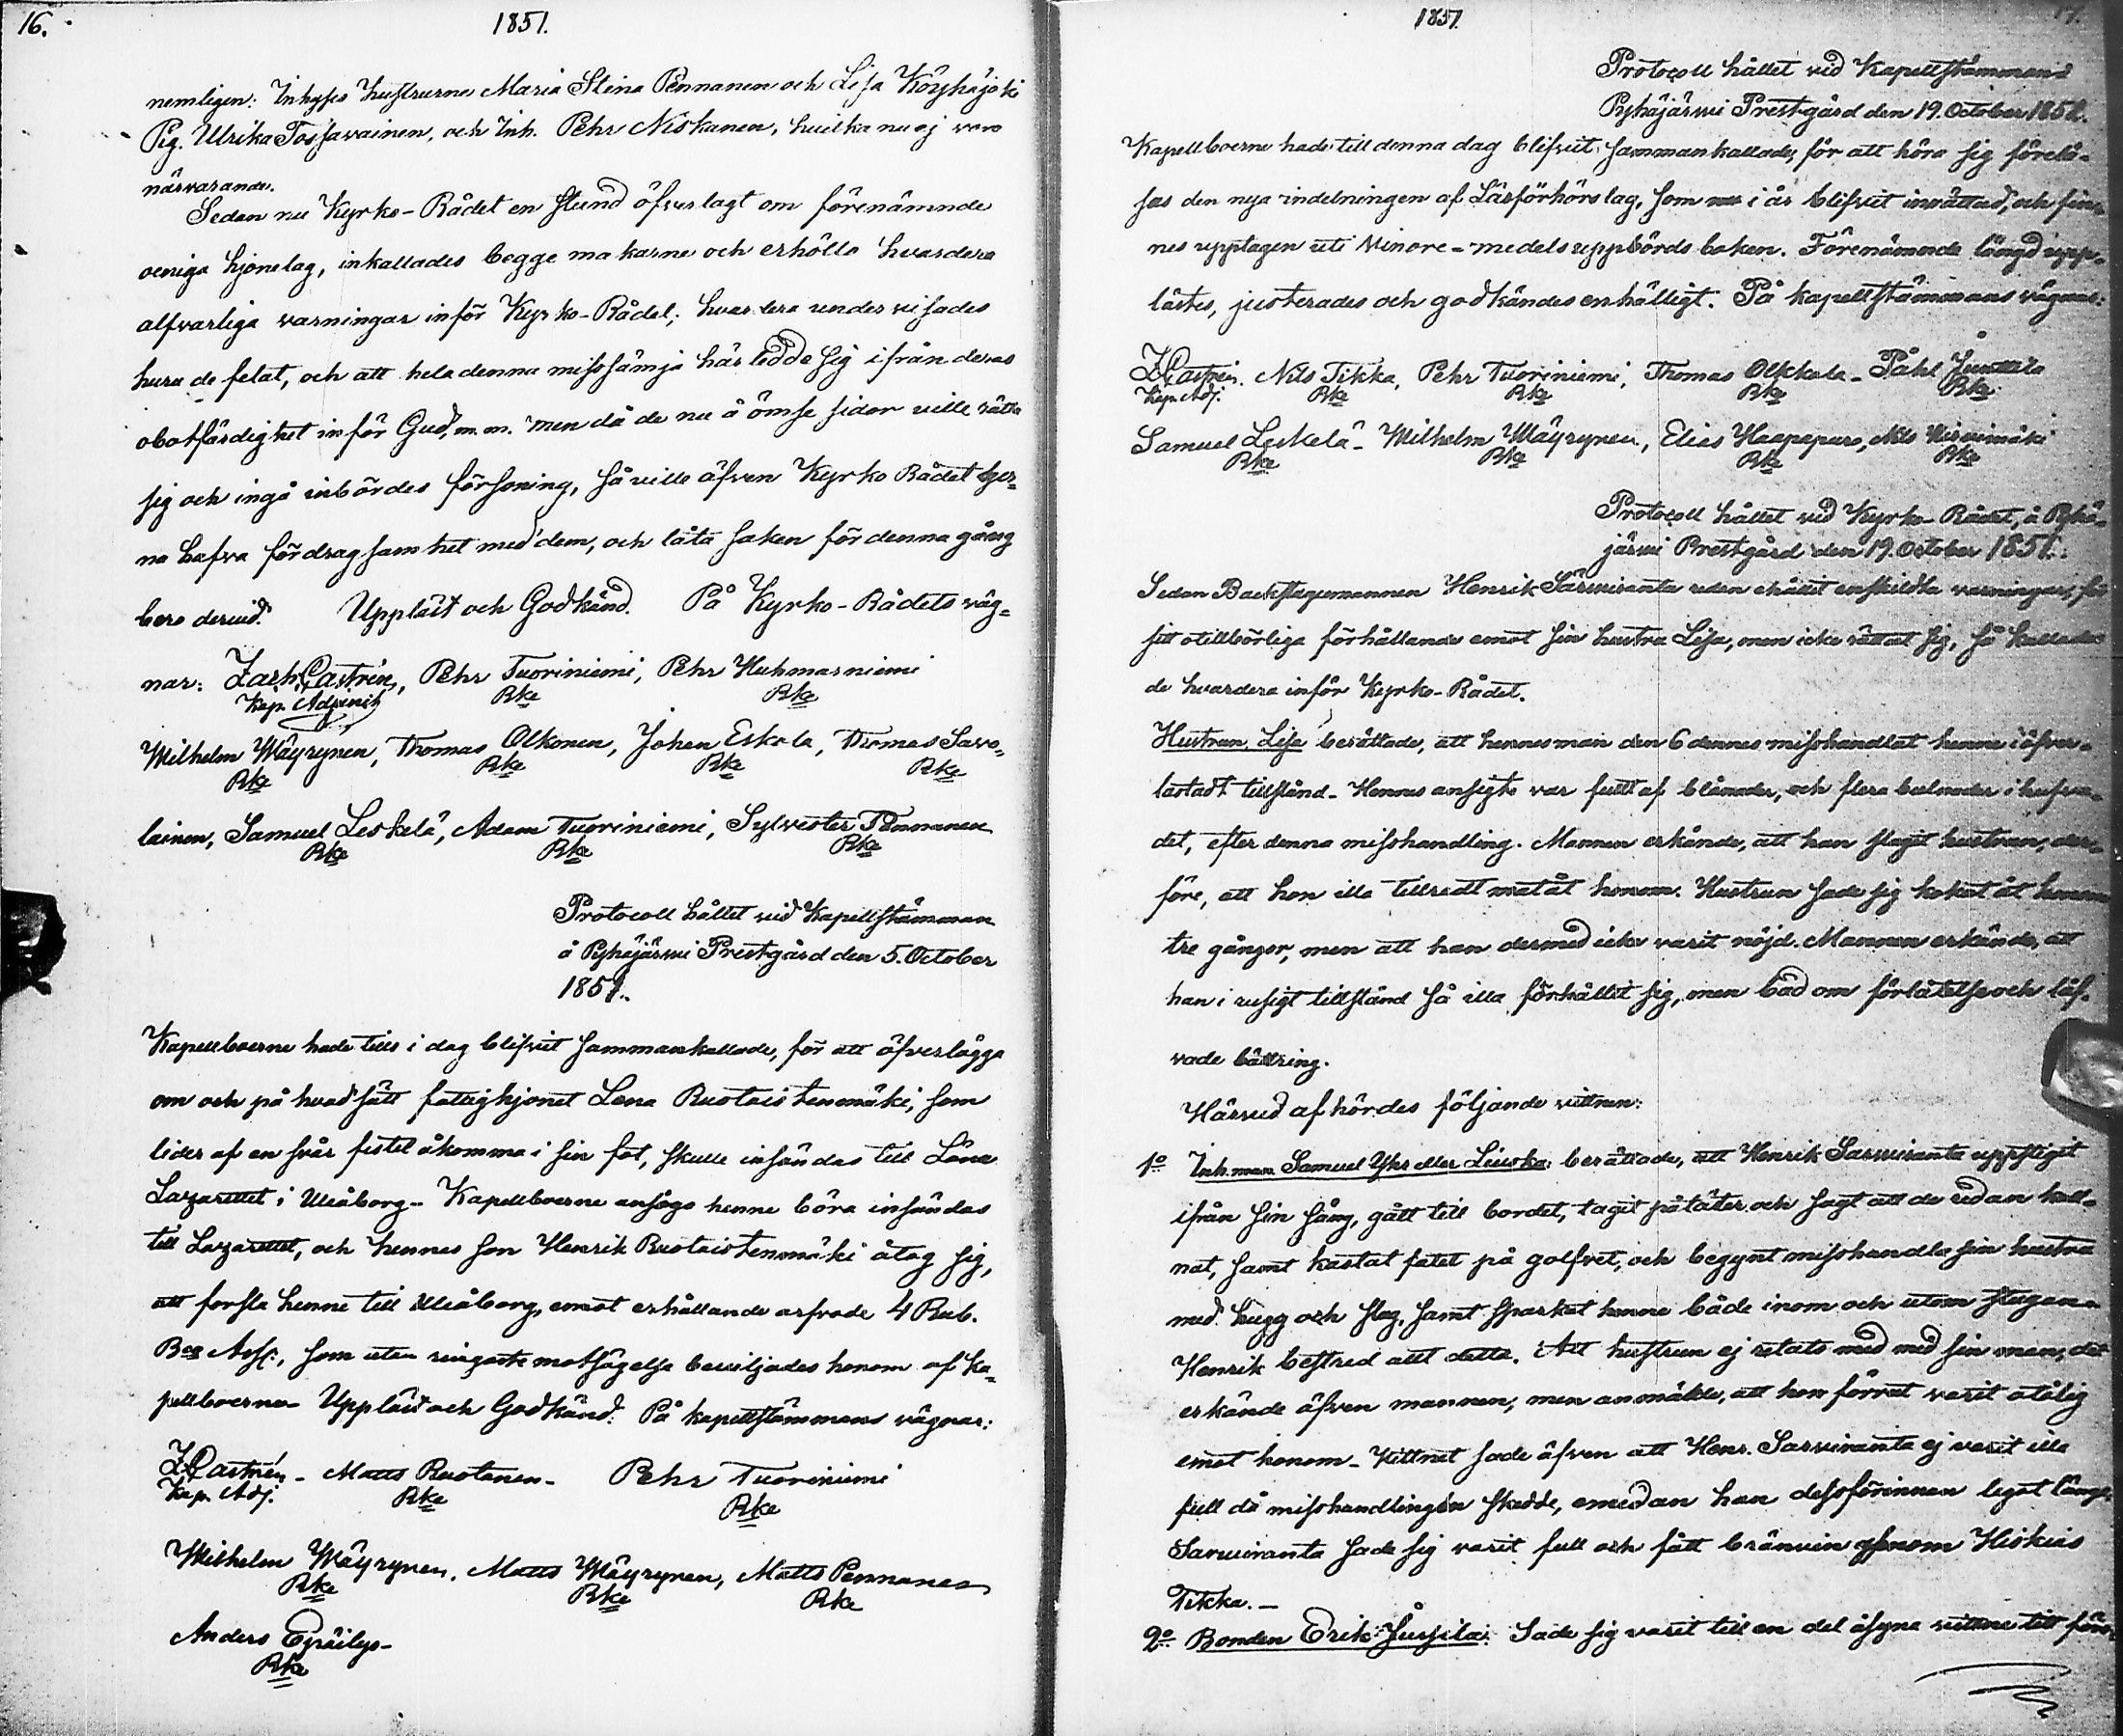 16.
1851.
nemligen: Inhyses hustrurne Maria Stina Pennanen och Lisa Köyhäjoki
Pig. Ulrika Tossavainen, och Inh. Pehr Niskanen, hvilka nu ej voro
närvarande.
Sedan nu Kyrko-Rådet en stund öfverlagt om förenämnde
oeniga hjonelag, inkallades begge makarne och erhöllo hvardera
alfvarliga varningar inför Kyrko-Rådet; hvardera undervisades
huru de felat, och att hela denna missämja härledde sig ifrån deras
obotfärdighet inför Gud, m.m. men då de nu å ömse sidor ville rätta
sig och ingå inbördes försoning, så ville äfven Kyrko Rådet ger-
na hafva fördragsamhet med dem, och låta saken för denna gång
bero dervid. Uppläst och Godkänd. På Kyrko-Rådets väg-
nar: Zach. Castrén, Pehr Tuoriniemi, Pehr Huhmarniemi
Kap. Adjunct Rke Rke
Wilhelm Mäyrynen, Thomas Olkonen, Johan Eskola, Thomas Savo-
Rke Rke Rke Rke
lainen, Samuel Leskelä, Adam Tuoriniemi, Sylvester Pennanen
Rke Rke Rke
Protocoll hållet vid Kapellstämman
å Pyhäjärvi Prestgård den 5. October
1851.
Kapellboerne hade till i dag blifvit sammankallade, för att öfverlägga
om och på hvad sätt fattighjonet Lena Ruotoistenmäki, som
lider af en svår fistel åkomma i sin fot, skulle insändas till Läns
Lazarettet i Uleåborg - Kapellboerne ansågo henne böra insändas
till Lazarettet, och hennes son Henrik Ruotoistenmäki åtog sig,
att forsla henne till Uleåborg, emot erhållande arfvode 4 Rub.
Bco Ass:, som utan ringaste motsägelse beviljades honom af Ka-
pellboerne - Uppläst och Godkänd: På kapellstämmans vägnar:
Z Castrén - Matts Ruotanen - Pehr Tuoriniemi
Kap. Adj. Rke Rke
Wilhelm Mäyrynen, Matts Mäyrynen, Matts Pennanen
Rke Rke Rke
Anders Eyräilys -
Rke
1851.
17.
Protocoll hållet vid Kapellstämman å
Pyhäjärvi Prestgård den 19. October 1851.
Kapellboerne hade till denna dag blifvit sammankallade, för att höra sig förelä-
sas den nya indelningen af Läsförhörslag, som i år blifvit inrättad, och fin-
nes upptagen uti Minore-medels uppbördsboken. Förenämnde längd upp-
lästes, justerades och godkändes enhälligt. På kapellstämmans vägnar:
Z Castrén. Nils Tikka, Pehr Tuoriniemi, Thomas Olkkola - Påhl Junttila
Kap. Adj. Rke Rke Rke Rke
Samuel Leskelä - Wilhelm Mäyrynen, Elias Haapapuro, Nils
Rke Rke Rke Rke
Protocoll hållet vid Kyrko-Rådet, å Pyhä-
järvi Prestgård den 19. October 1851.
Sedan Backstugumannen Henrik Sarviranta redan erhållit enskildta varningar, för
sitt otillbörliga förhållande emot sin hustru Lisa, men icke rättat sig, så kallades
de hvardera inför Kyrko-Rådet.
Hustrun Lisa berättade, att hennes man den 6 dennes misshandlat henne i öfver-
lastadt tillstånd - Hennes ansigte var fullt af blånader, och flera bulnader i hufvu-
det, efter denna misshandling. Mannen erkände, att han slagit hustrun, der-
före, att hon illa tillredt mat åt honom. Hustrun sade sig kokat åt honom
tre gånger, men att han dermed icke varit nöjd. Mannen erkände, att
han i rusigt tillstånd så illa förhållit sig, men bad om förlåtelse och låf-
vade bättring.
Härvid afhördes följande vittnen:
1o Inh.man Samuel Yhr eller Liuska: berättade, att Henrik Sarviranta uppstigit
ifrån sin säng, gått till bordet, tagit påtäter och sagt att de redan kall-
nat, samt kastat fatet på golfvet, och begynt misshandla sin hustru
med hugg och slag, samt sparkat henne både inom och utom stugan -
Henrik bestred allt detta. Att hustrun ej retats med sin man, det
erkände äfven mannen, men anmälde, att hon förrut varit otålig
emot honom - Vittnet sade äfven att Henr. Sarviranta ej varit illa
full då misshandlingen skedde, emedan han dessförinnan legat länge.
Sarviranta sade sig varit full och fått bränvin genom Hiskias
Tikka. -
2o Bonden Erik Jussila: Sade sig varit till en del åsyna vittne till före-